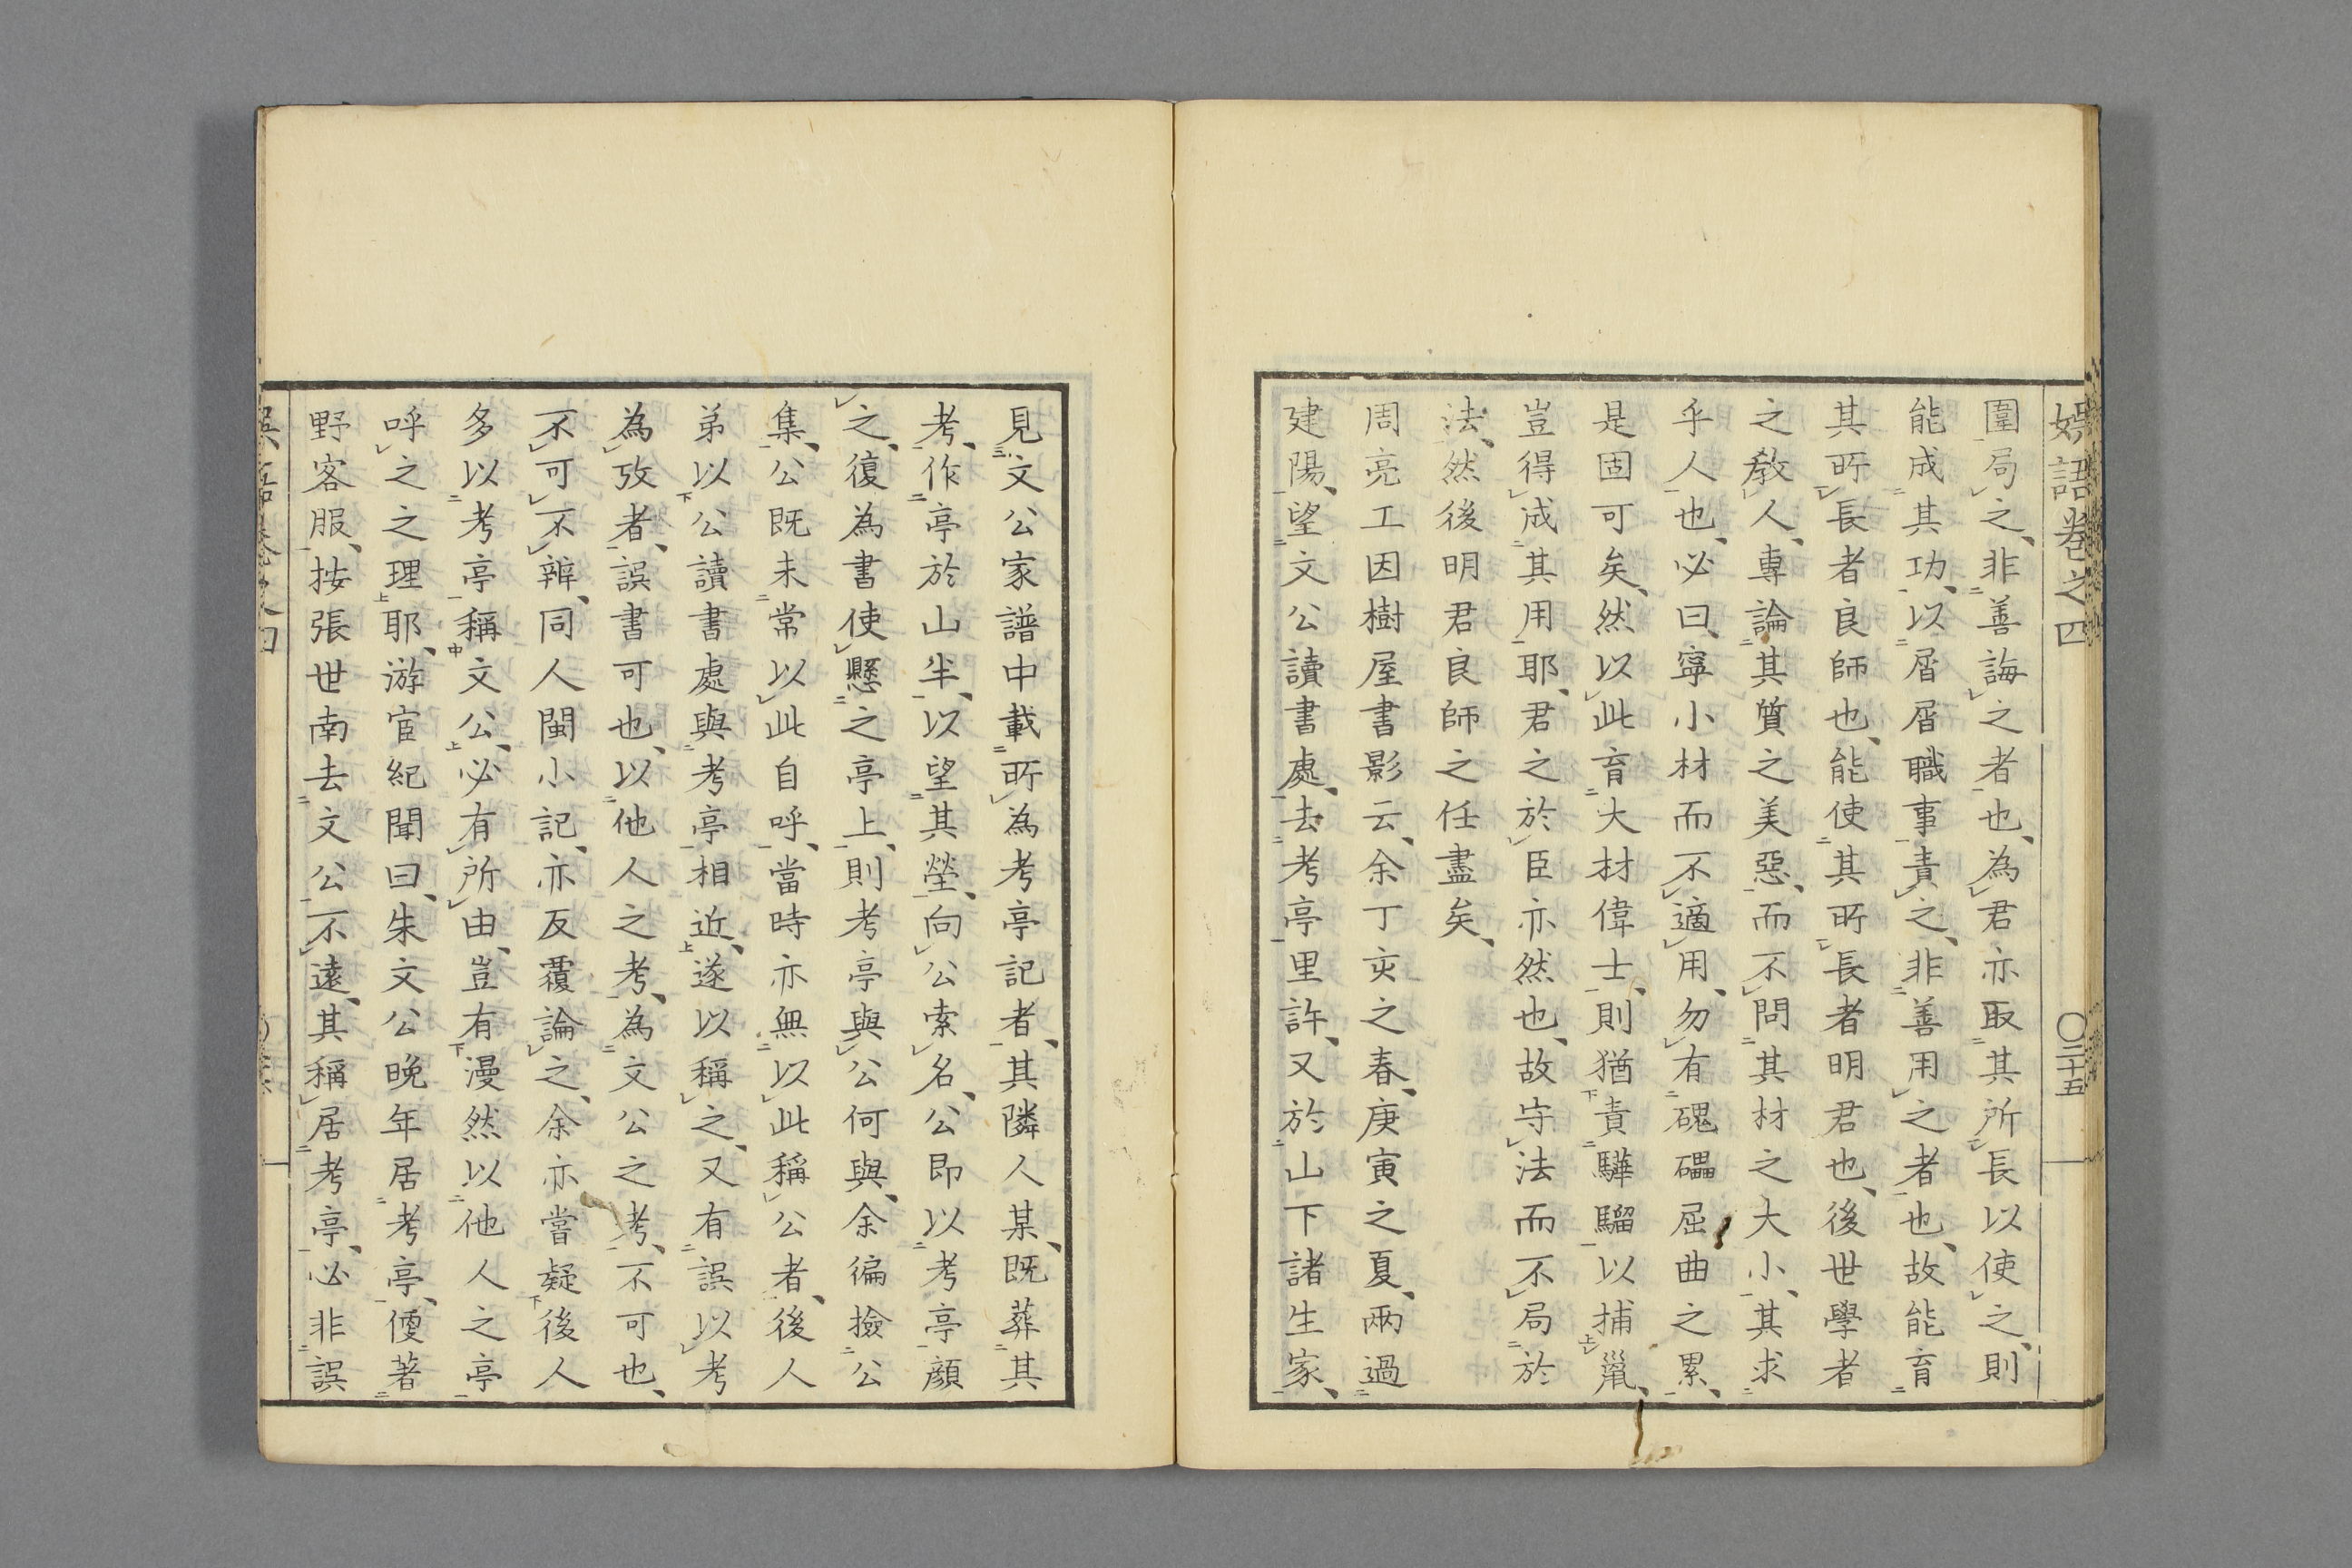 娯語卷之四
〇二十五
圍局之、非善誨之者也、為君亦取其所長以使之、則
能成其功、以屑屑職事責之、非善用之者也、故能育
其所長者良師也、能使其所長者明君也、後世學者
之教人、專論其質之美惡、而不問其材之大小、其求
乎人也、必曰、寧小材而不適用、勿有磈礧屈曲之累、
是固可矣、然以此育大材偉士、則猶責驊騮以捕鼠、
豈得成其用耶、君之於臣亦然也、故守法而不局於
法、然後明君良師之任盡矣、
周亮工因樹屋書影云、余丁亥之春、庚寅之夏、兩過
建陽、望文公讀書處、去考亭里許、又於山下諸生家、
見文公家譜中載所為考亭記者、其隣人某、既葬其
考、作亭於山半、以望其塋、向公索名、公即以考亭顔
之、復為書使懸之亭上、則考亭與公何與、余徧撿公
集、公既未常以此自呼、當時亦無以此稱公者、後人
弟以公讀書處與考亭相近、遂以稱之、又有誤以考
為攷者、誤書可也、以他人之考、為文公之考、不可也、
不可不辨、同人閩小記、亦反覆論之、余亦嘗疑後人
多以考亭稱文公、必有所由、豈有漫然以他人之亭
呼之之理耶、游宦紀聞曰、朱文公晩年居考亭、便著
野客服、按張世南去文公不遠、其稱居考亭、必非誤